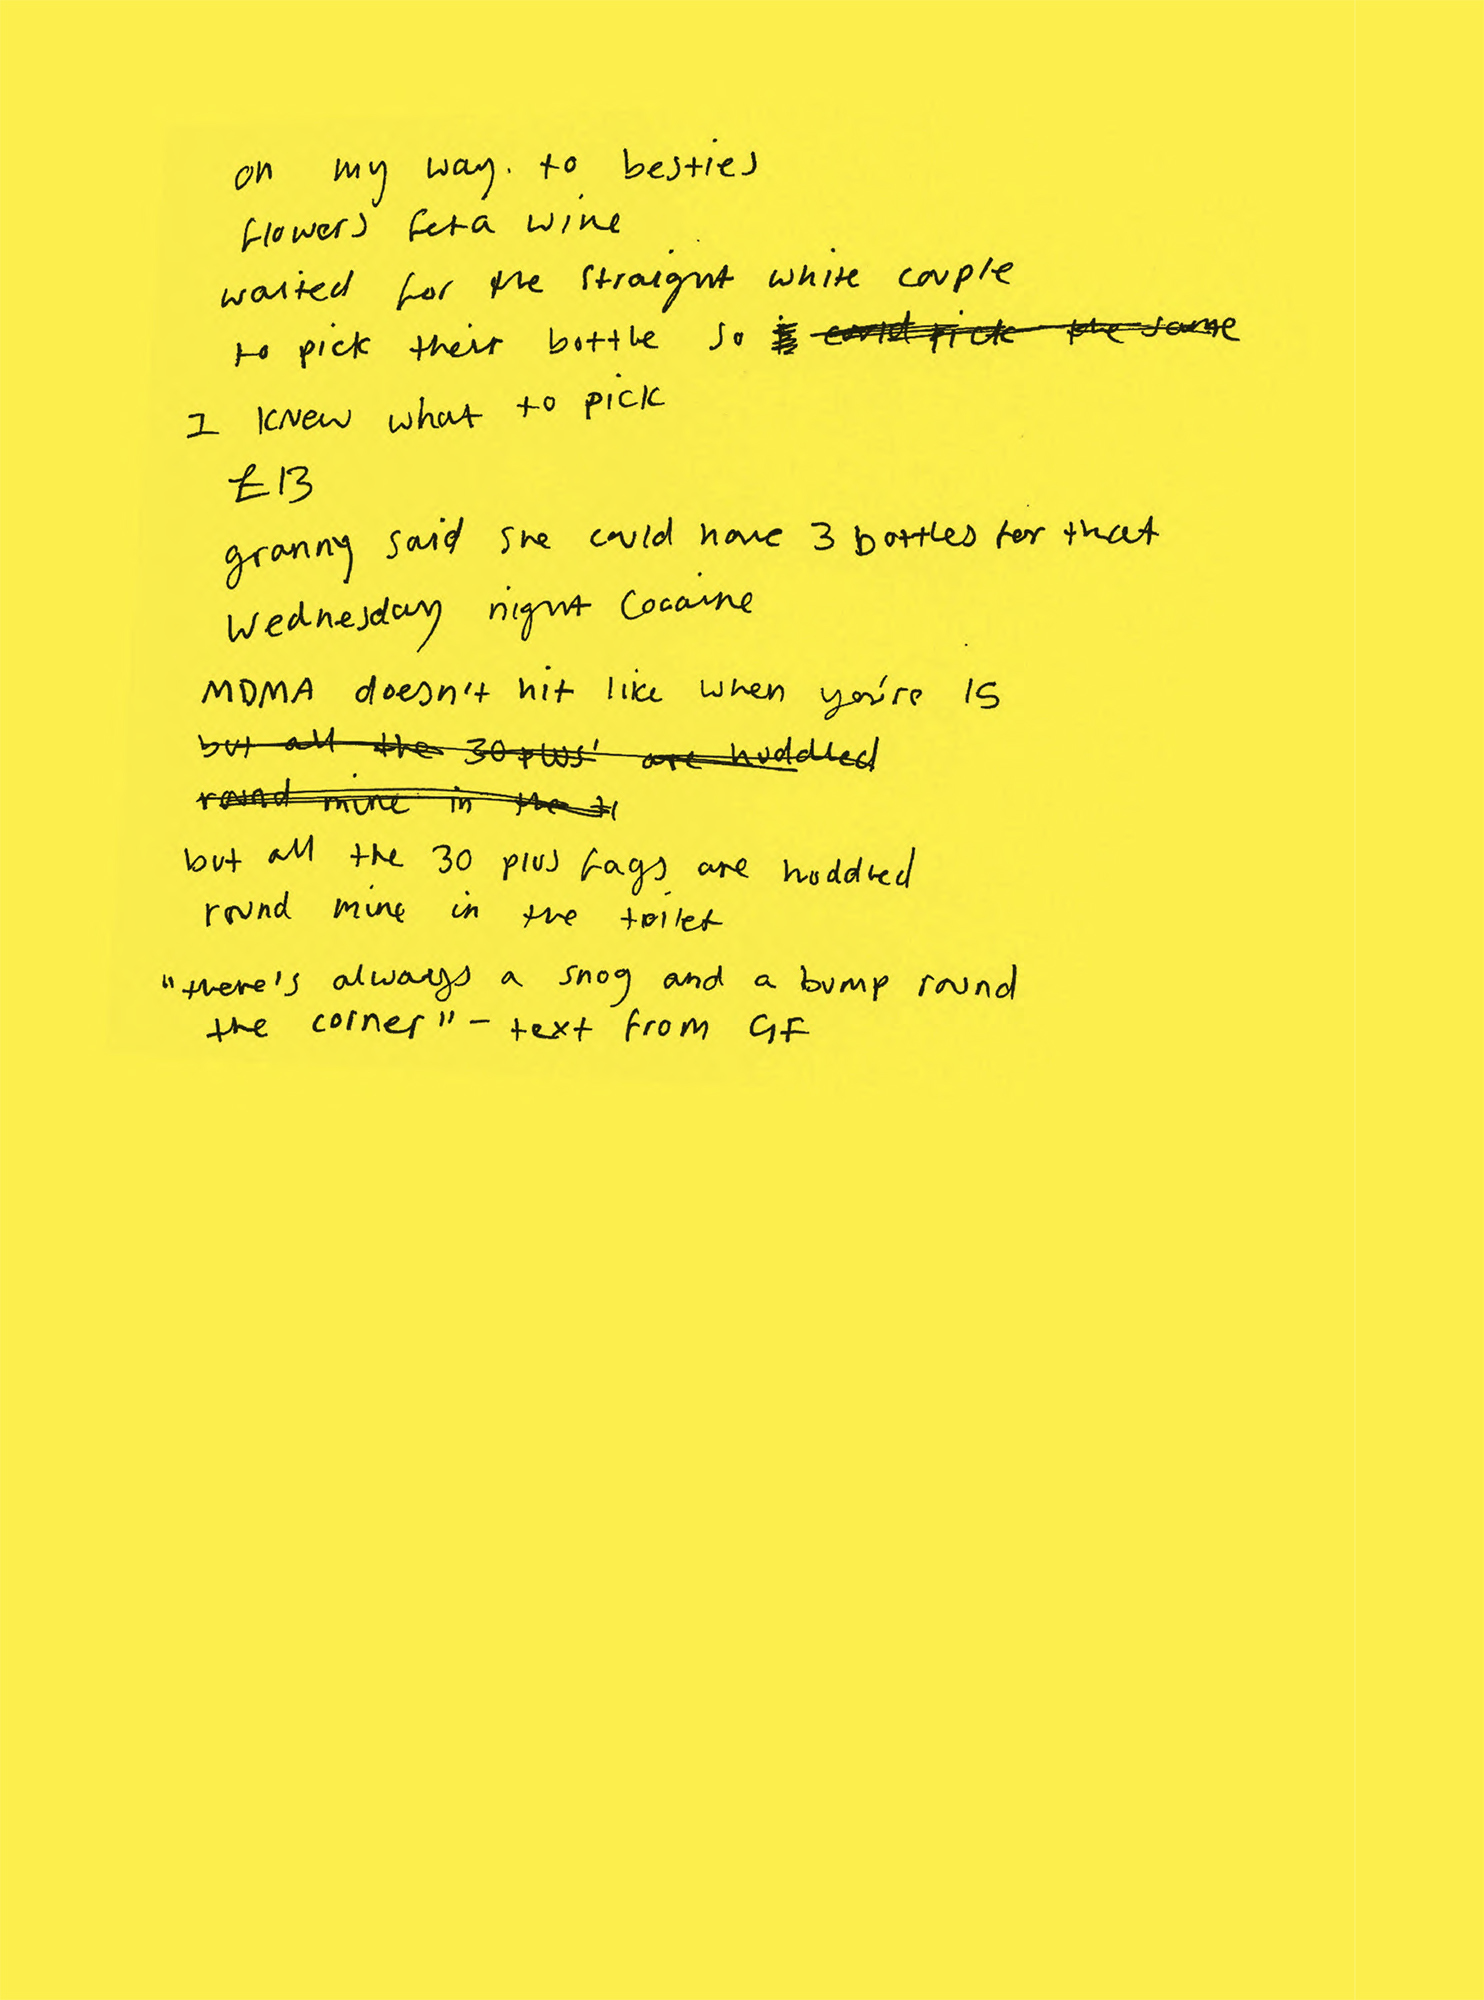 on my way. to besties
flowers feta wine
waited for the straight white couple
to pick their bottle so I could pick the same
I knew what to pick
£13
granny said she could have 3 bottles for that
Wednesday night Cocaine
MDMA doesn't hit like when you're 15
but all the 30 plus' are huddled
round mine in the t
but all the 30 plus fags are huddled
round mine in the toilet
"there's always a snog and a bump round
the corner" - text from GF